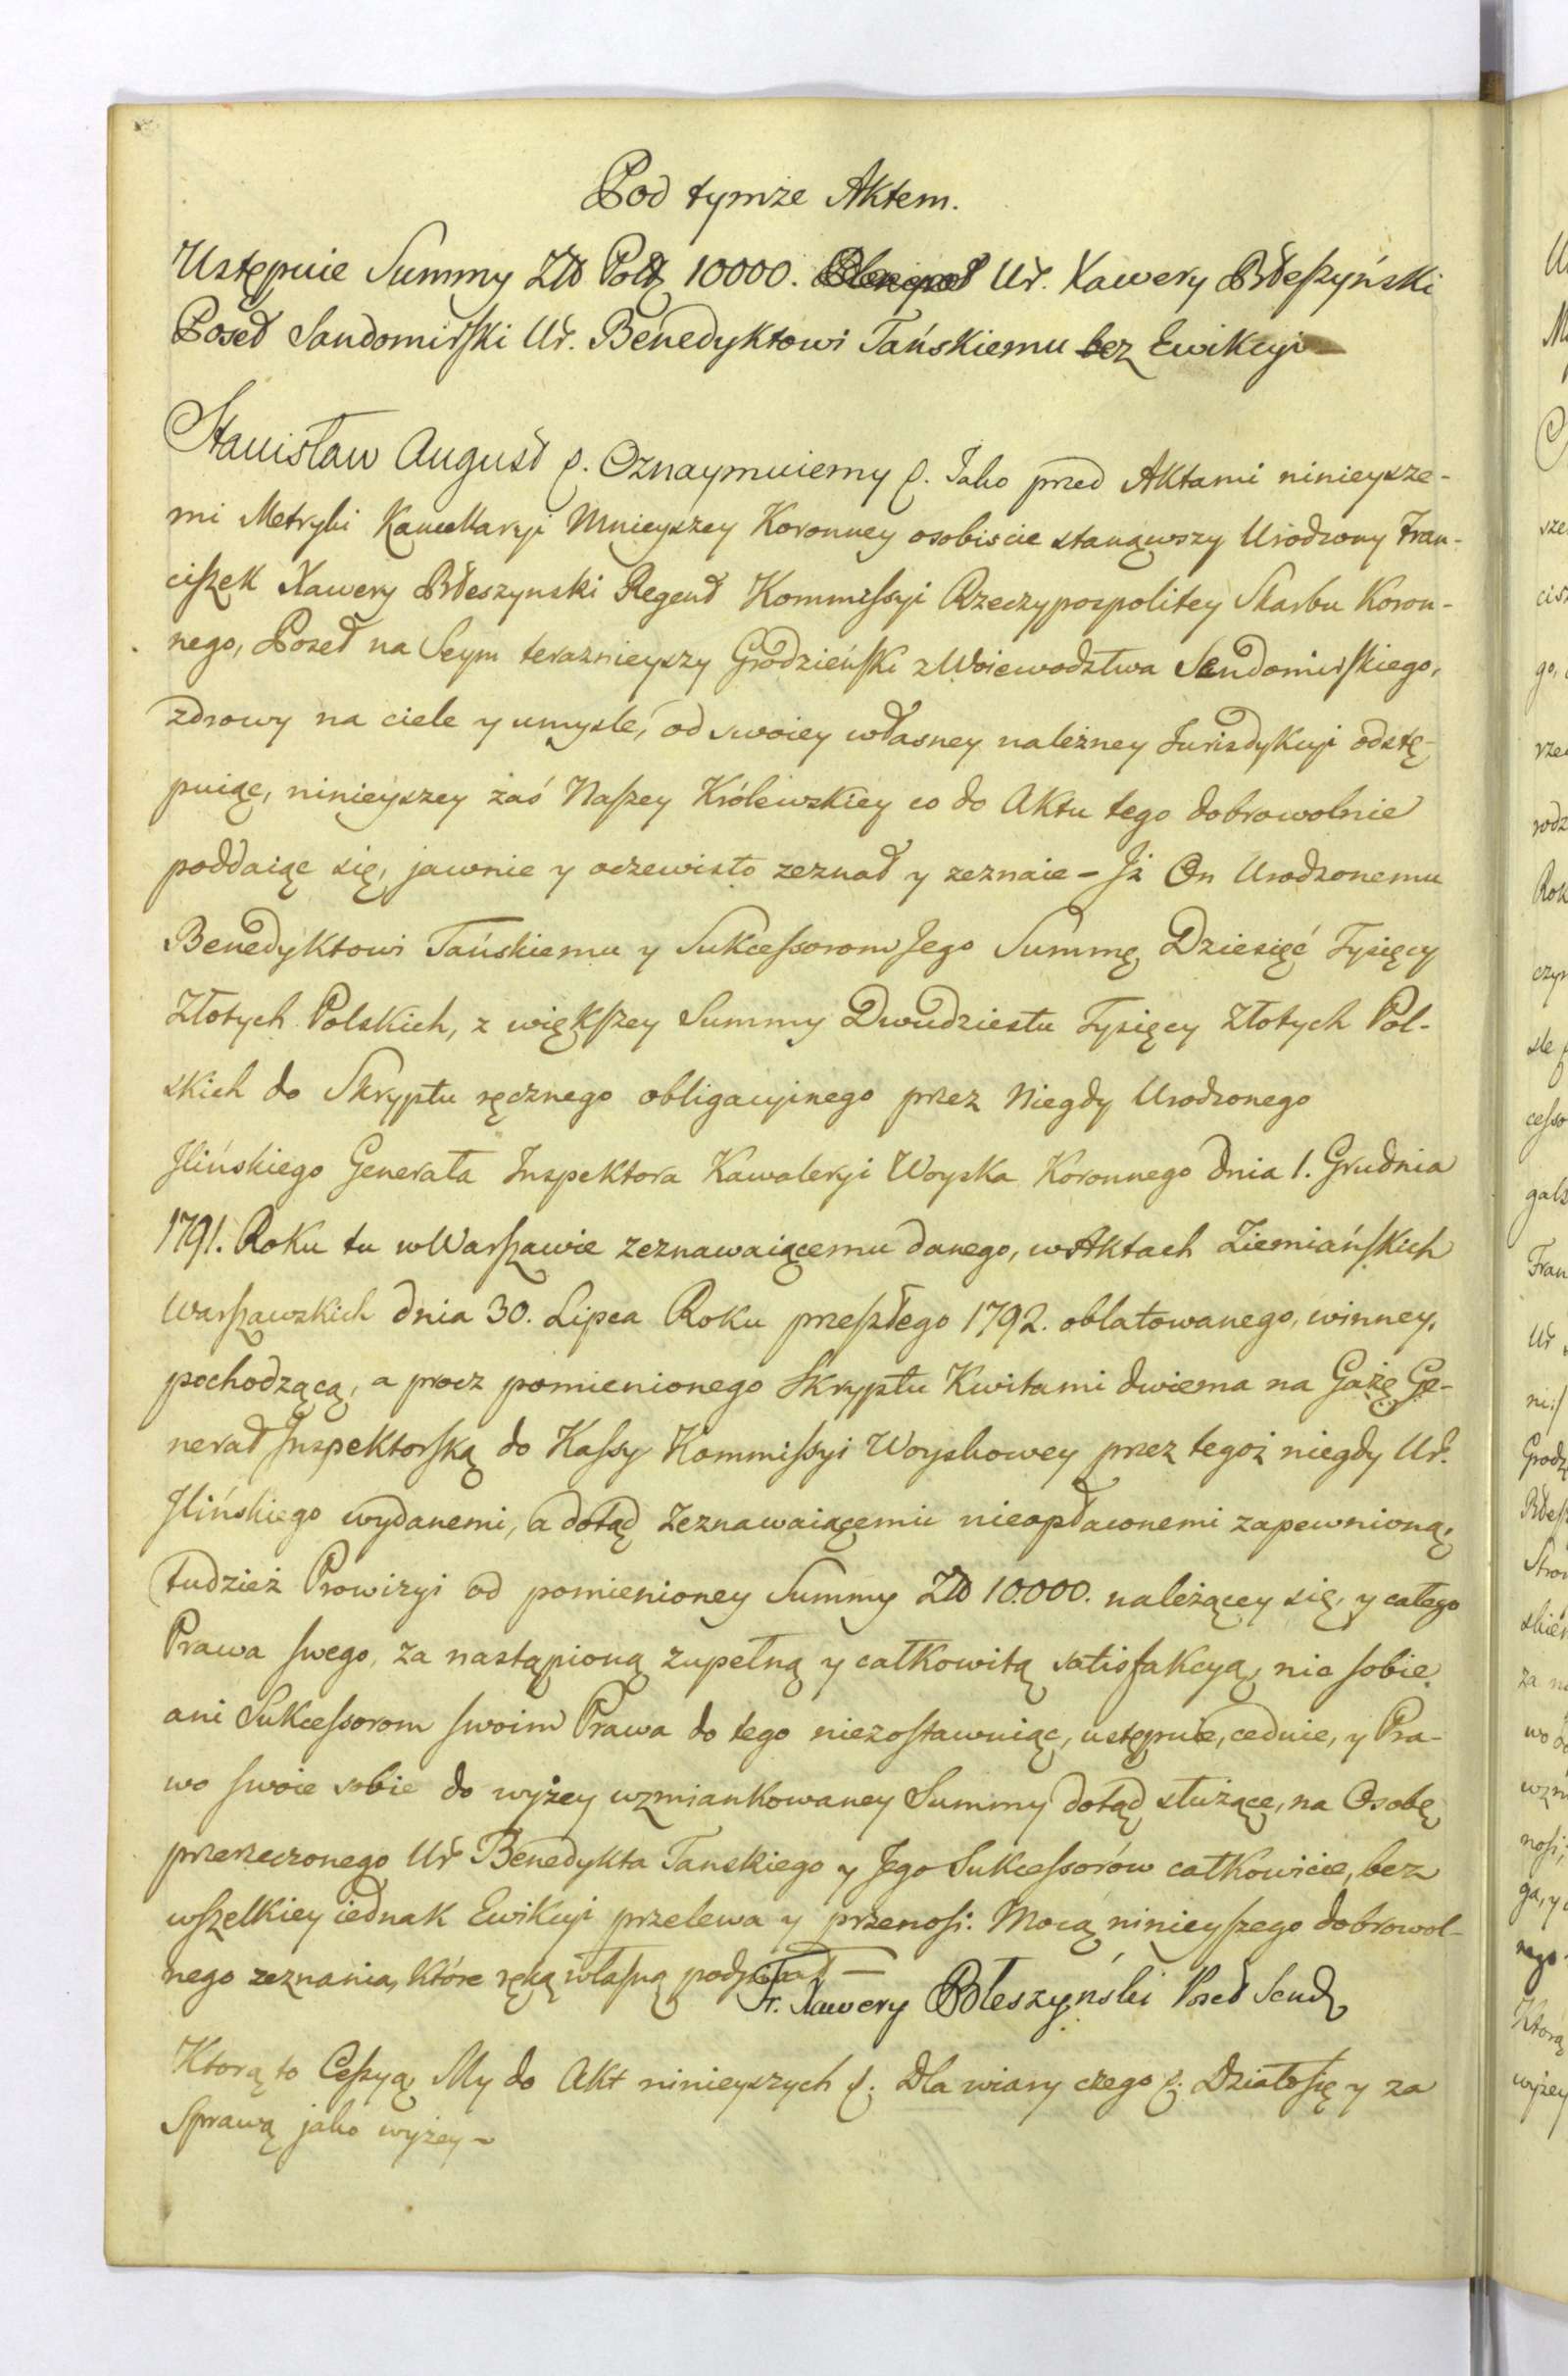 Pod tymże Aktem.
Ustępuie Summy Złł Polǳ 10000. Ur. Xawery Błeszyński
Poseł Sandomirski Ur. Benedyktowi Tańskiemu bez Ewikcyi
Stanisław August &. Oznaymuiemy &. Jako przed Aktami ninieysze-
mi Metryki Kancellaryi Mnieyszey Koronney osobiscie stanąwszy Urodzony Fran-
ciszek Xawery Błeszynski Regent Kommissyi Rzeczypospolitey Skarbu Koron-
nego, Poseł na Seym teraznieyszy Grodzieński z Woiewodztwa Sendomirskiego,
zdrowy na ciele y umysle, od swoiey własney należney Jurisdykcyi odstę-
puiąc, ninieyszey zaś Naszey Królewskiey co do Aktu tego dobrowolnie
poddaiąc się, jawnie y oczewisto zeznał y zeznaie – Jż On Urodzonemu
Benedyktowi Tańskiemu y Sukcessorom Jego Summę Dziesięć Tysięcy
Złotych Polskich, z większey Summy Dwudziestu Tysięcy Złotych Pol-
skich do Skryptu ręcznego obligacyinego przez Niegdy Urodzonego
Jlińskiego Generała Inspektora Kawaleryi Woyska Koronnego dnia 1. Grudnia
1791. Roku tu w Warszawie zeznawaiącemu danego, w Aktach Ziemiańskich
Warszawskich dnia 30. Lipca Roku przeszłego 1792. oblatowanego, winney,
pochodzącą, a procz pomienionego Skryptu Kwitami dwiema na Gażę Ge-
nerał Inspektorską do Kassy Kommissyi Woyskowey przez tegoż niegdy Ur.
Jlińskiego wydanemi, a dotąd Zeznawaiącemu nieopłaconemi zapewnioną,
tudzież Prowizyi od pomienioney Summy Złł 10.000. należącey się, y całego
Prawa swego, za nastąpioną zupełną y całkowitą satisfakcyą, nic sobie
ani Sukcessorom swoim Prawa do tego niezostawuiąc, ustępuie, ceduie, y Pra-
wo swoie sobie do wyżey wzmiankowaney Summy dotąd służące, na Osobę
przerzeczonego Ur Benedykta Tanskiego y Jego Sukcessorów całkowicie, bez
wszelkiey iednak Ewikcyi przelewa y przenosi. Mocą ninieyszego dobrowol-
nego zeznania, które ręką własną podpisał —
Fr. Xawery Błeszyński Poseł Send
Ktorą to Cessyą My do Akt ninieyszych &. Dla wiary czego &. Działo się y za
Sprawą jako wyżey –